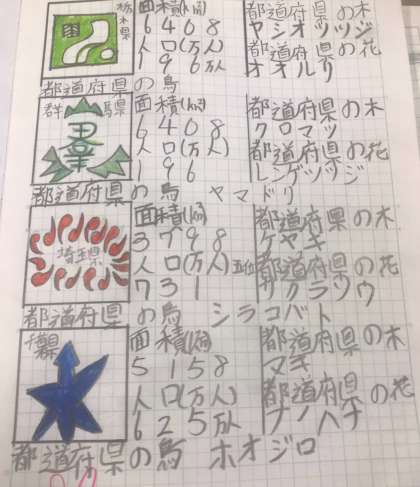 栃木県
面積(km)
6408
人口(万人)
196万人
都道府県の木
ヤシオツツジ
都道府県の花
オオルリ
都道府県の鳥
群馬県
面積(km)
6408
人口(万人)
196
都道府県の木
クロマツ
都道府県の花
レンゲツツジ
都道府県の鳥 ヤマドリ
埼玉県
面積(km)
3798
人口(万人)五位
731
都道府県の木
ケヤキ
都道府県の花
サクラソウ
都道府県の鳥 シラコバト
千葉県
面積(km)
5158
人口(万人)
625万人
都道府県の木
マキ
都道府県の花
ナノハナ
都道府県の鳥 ホオジロ